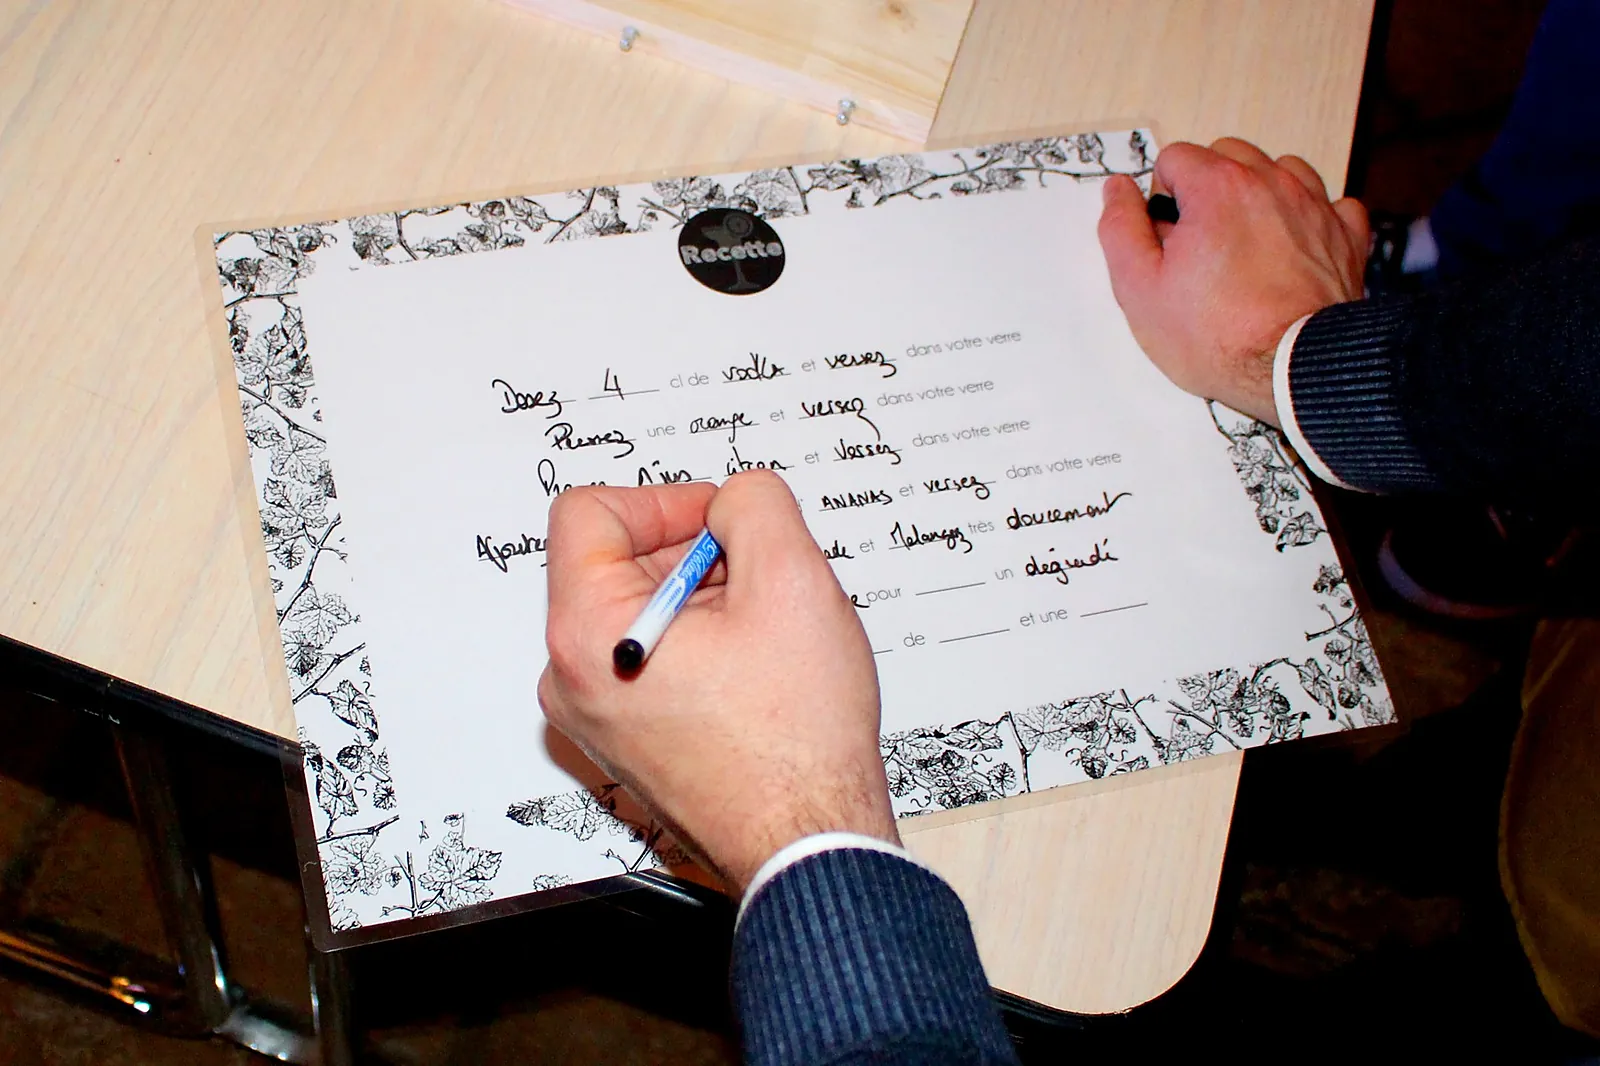 Recette
Dosez 4 cl de vodka et versez dans votre verre
Pressez une orange et versez dans votre verre
jus citron et Versez dans votre verre
ANANAS et versez dans votre verre
Ajoutez et Melangez très doucement
pour un dégradé
de et une